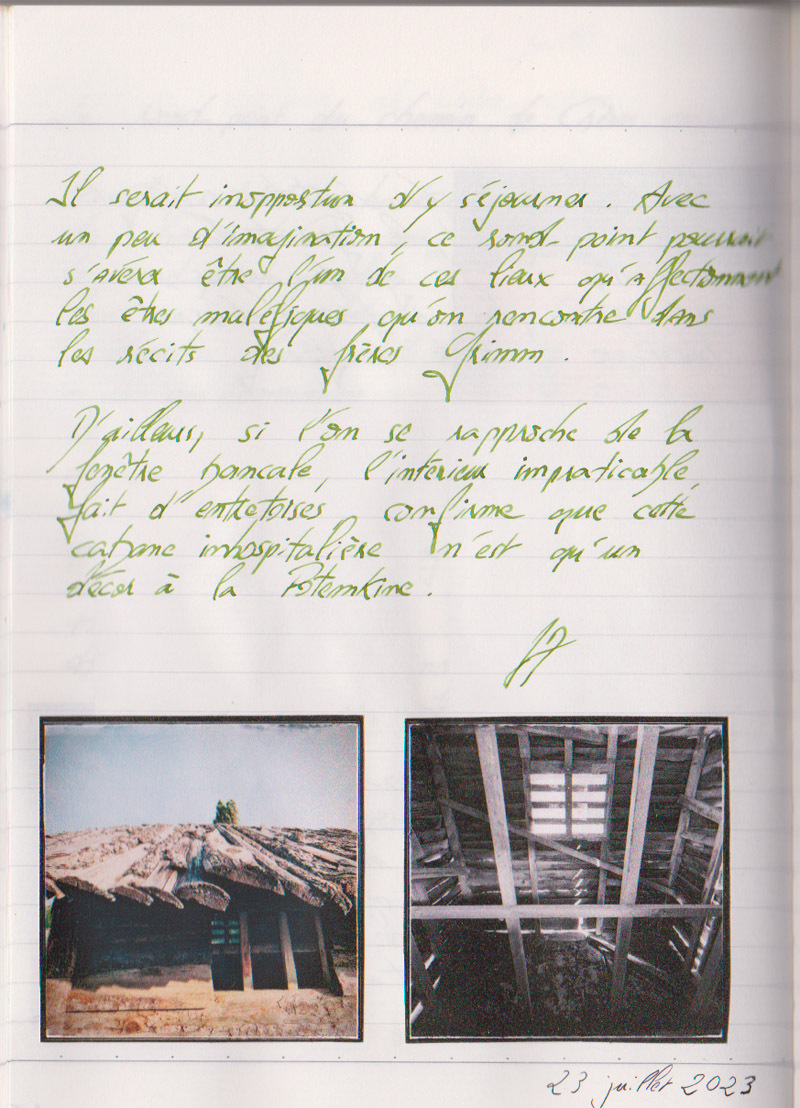 Il serait inopportun d'y séjourner. Avec
un peu d'imagination, ce rond-point pourrait
s'avérer être l'un de ces lieux qu'affectionnent
les êtres maléfiques qu'on rencontre dans
les récits des frères Grimm.
D'ailleurs, si l'on se rapproche de la
fenêtre bancale, l'intérieur impraticable,
fait d'entretoises confirme que cette
cabane inhospitalière n'est qu'un
décor à la Potemkine.
23 juillet 2023